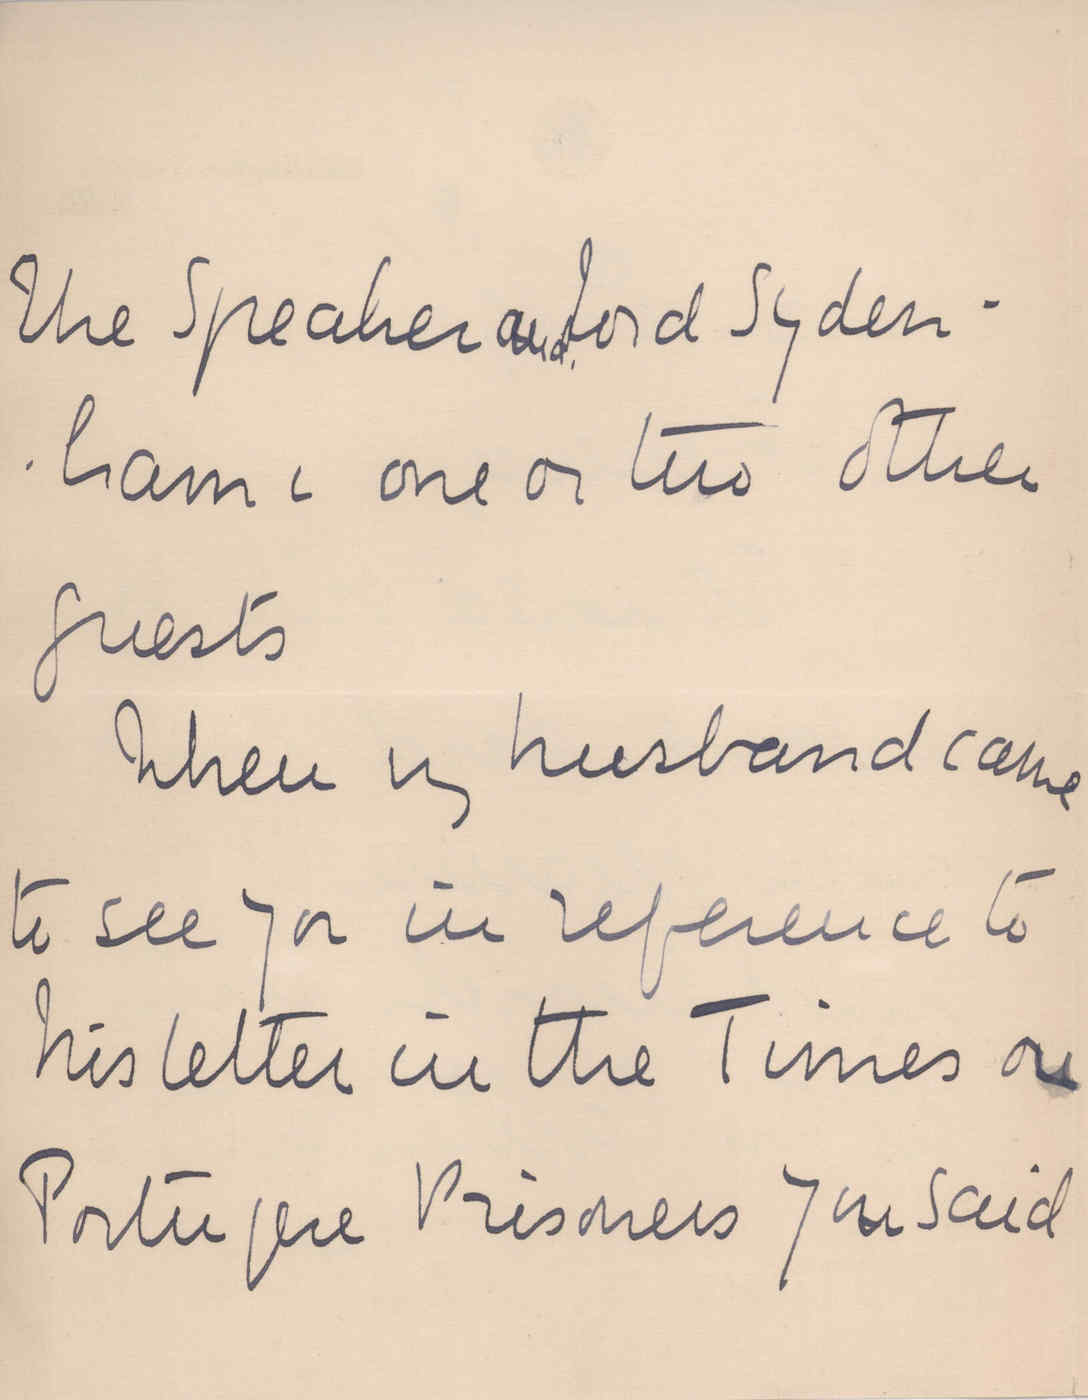 The Speaker and Lord Syden-
-ham & one or two other
guests
When my husband came
to see you in reference to
his letter in the Times on
Portuguese Prisoners you said